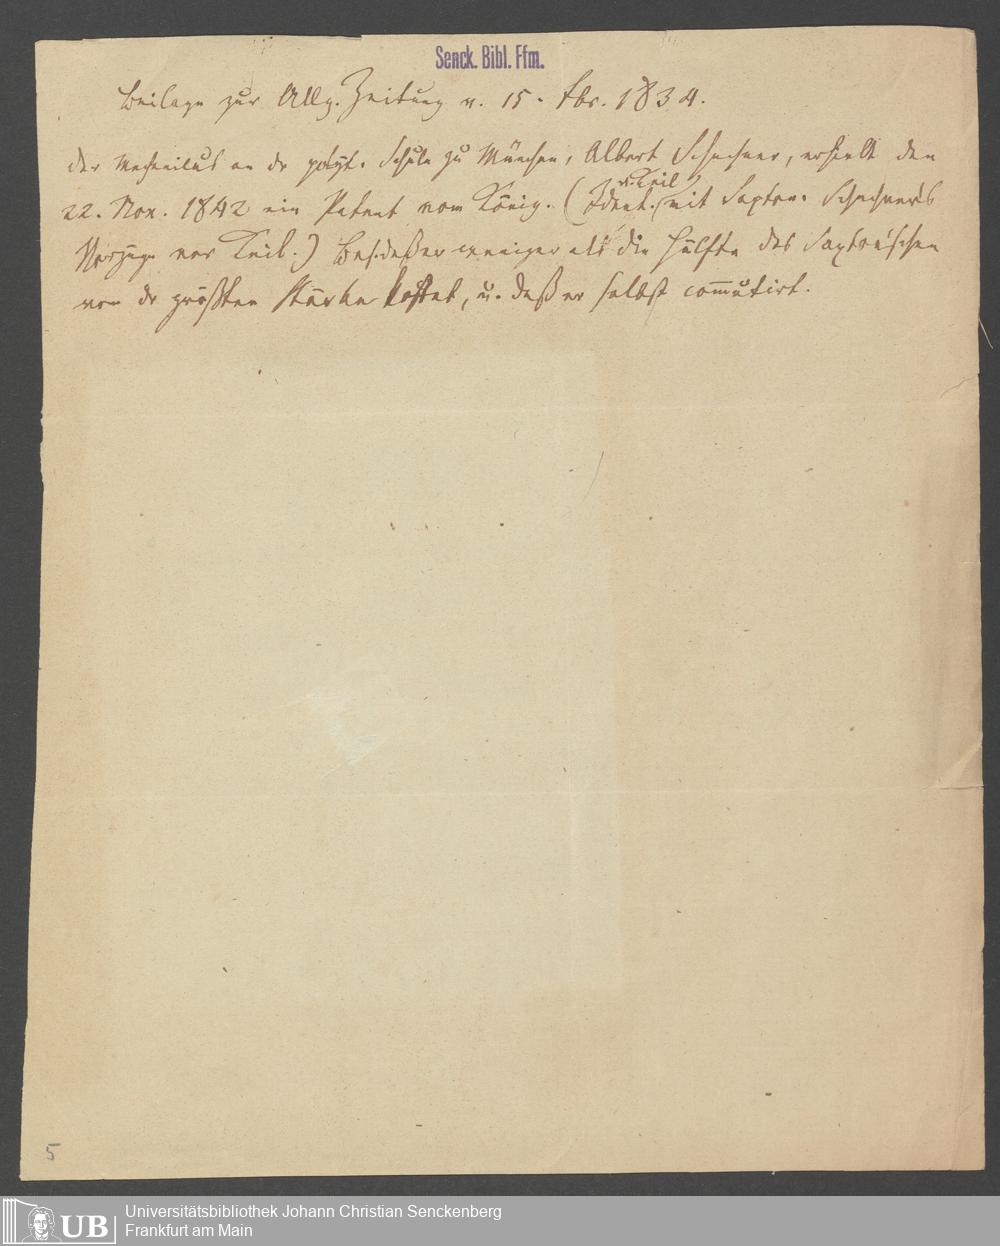 Senck. Bibl. Ffm.
Beilage zur Allg. Zeitung v. 15. Fbr. 1834.
Der Mechanikus an dr polyt. Schule zu München, Albert Schachner, erhielt den
u. Keil
22. Nov. 1842 ein Patent vom König. (Ident. mit Saxton. Schachner's
Vorzüge vor Keil.) daß er weniger als die Hälfte des Saxton'schen
von dr größten Stärke kostet, u. daß er selbst com̅utirt.
5
UB
Universitätsbibliothek Johann Christian Senckenberg
Frankfurt am Main